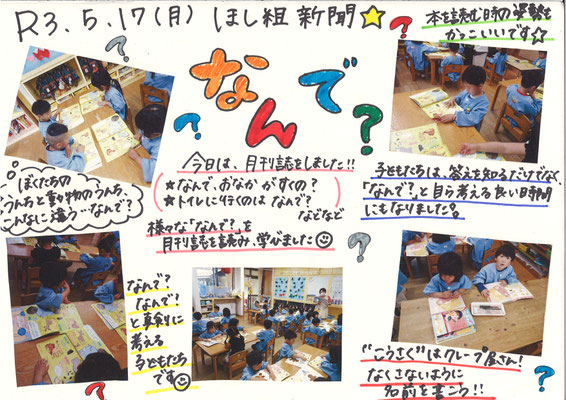 R3.5.17(月) ほし組新聞☆
本を読む時の姿勢も
かっこいいです☆
なんで?
今日は、月刊誌をしました!!
★なんで、おなかがすくの?
★トイレに行くのはなんで?
などなど
様々な「なんで?」を
月刊誌を読み、学びました☺
子どもたちは、答えを知るだけでなく、
「なんで?」と自ら考える良い時間
にもなりました。
ぼくたちの
うんちと動物のうんち、
こんなに違う…なんで?
なんで?
なんで?
と真剣に
考える
子どもたち
です☺
"こうさく"はクレープ屋さん!
なくさないように
名前を書こう!!